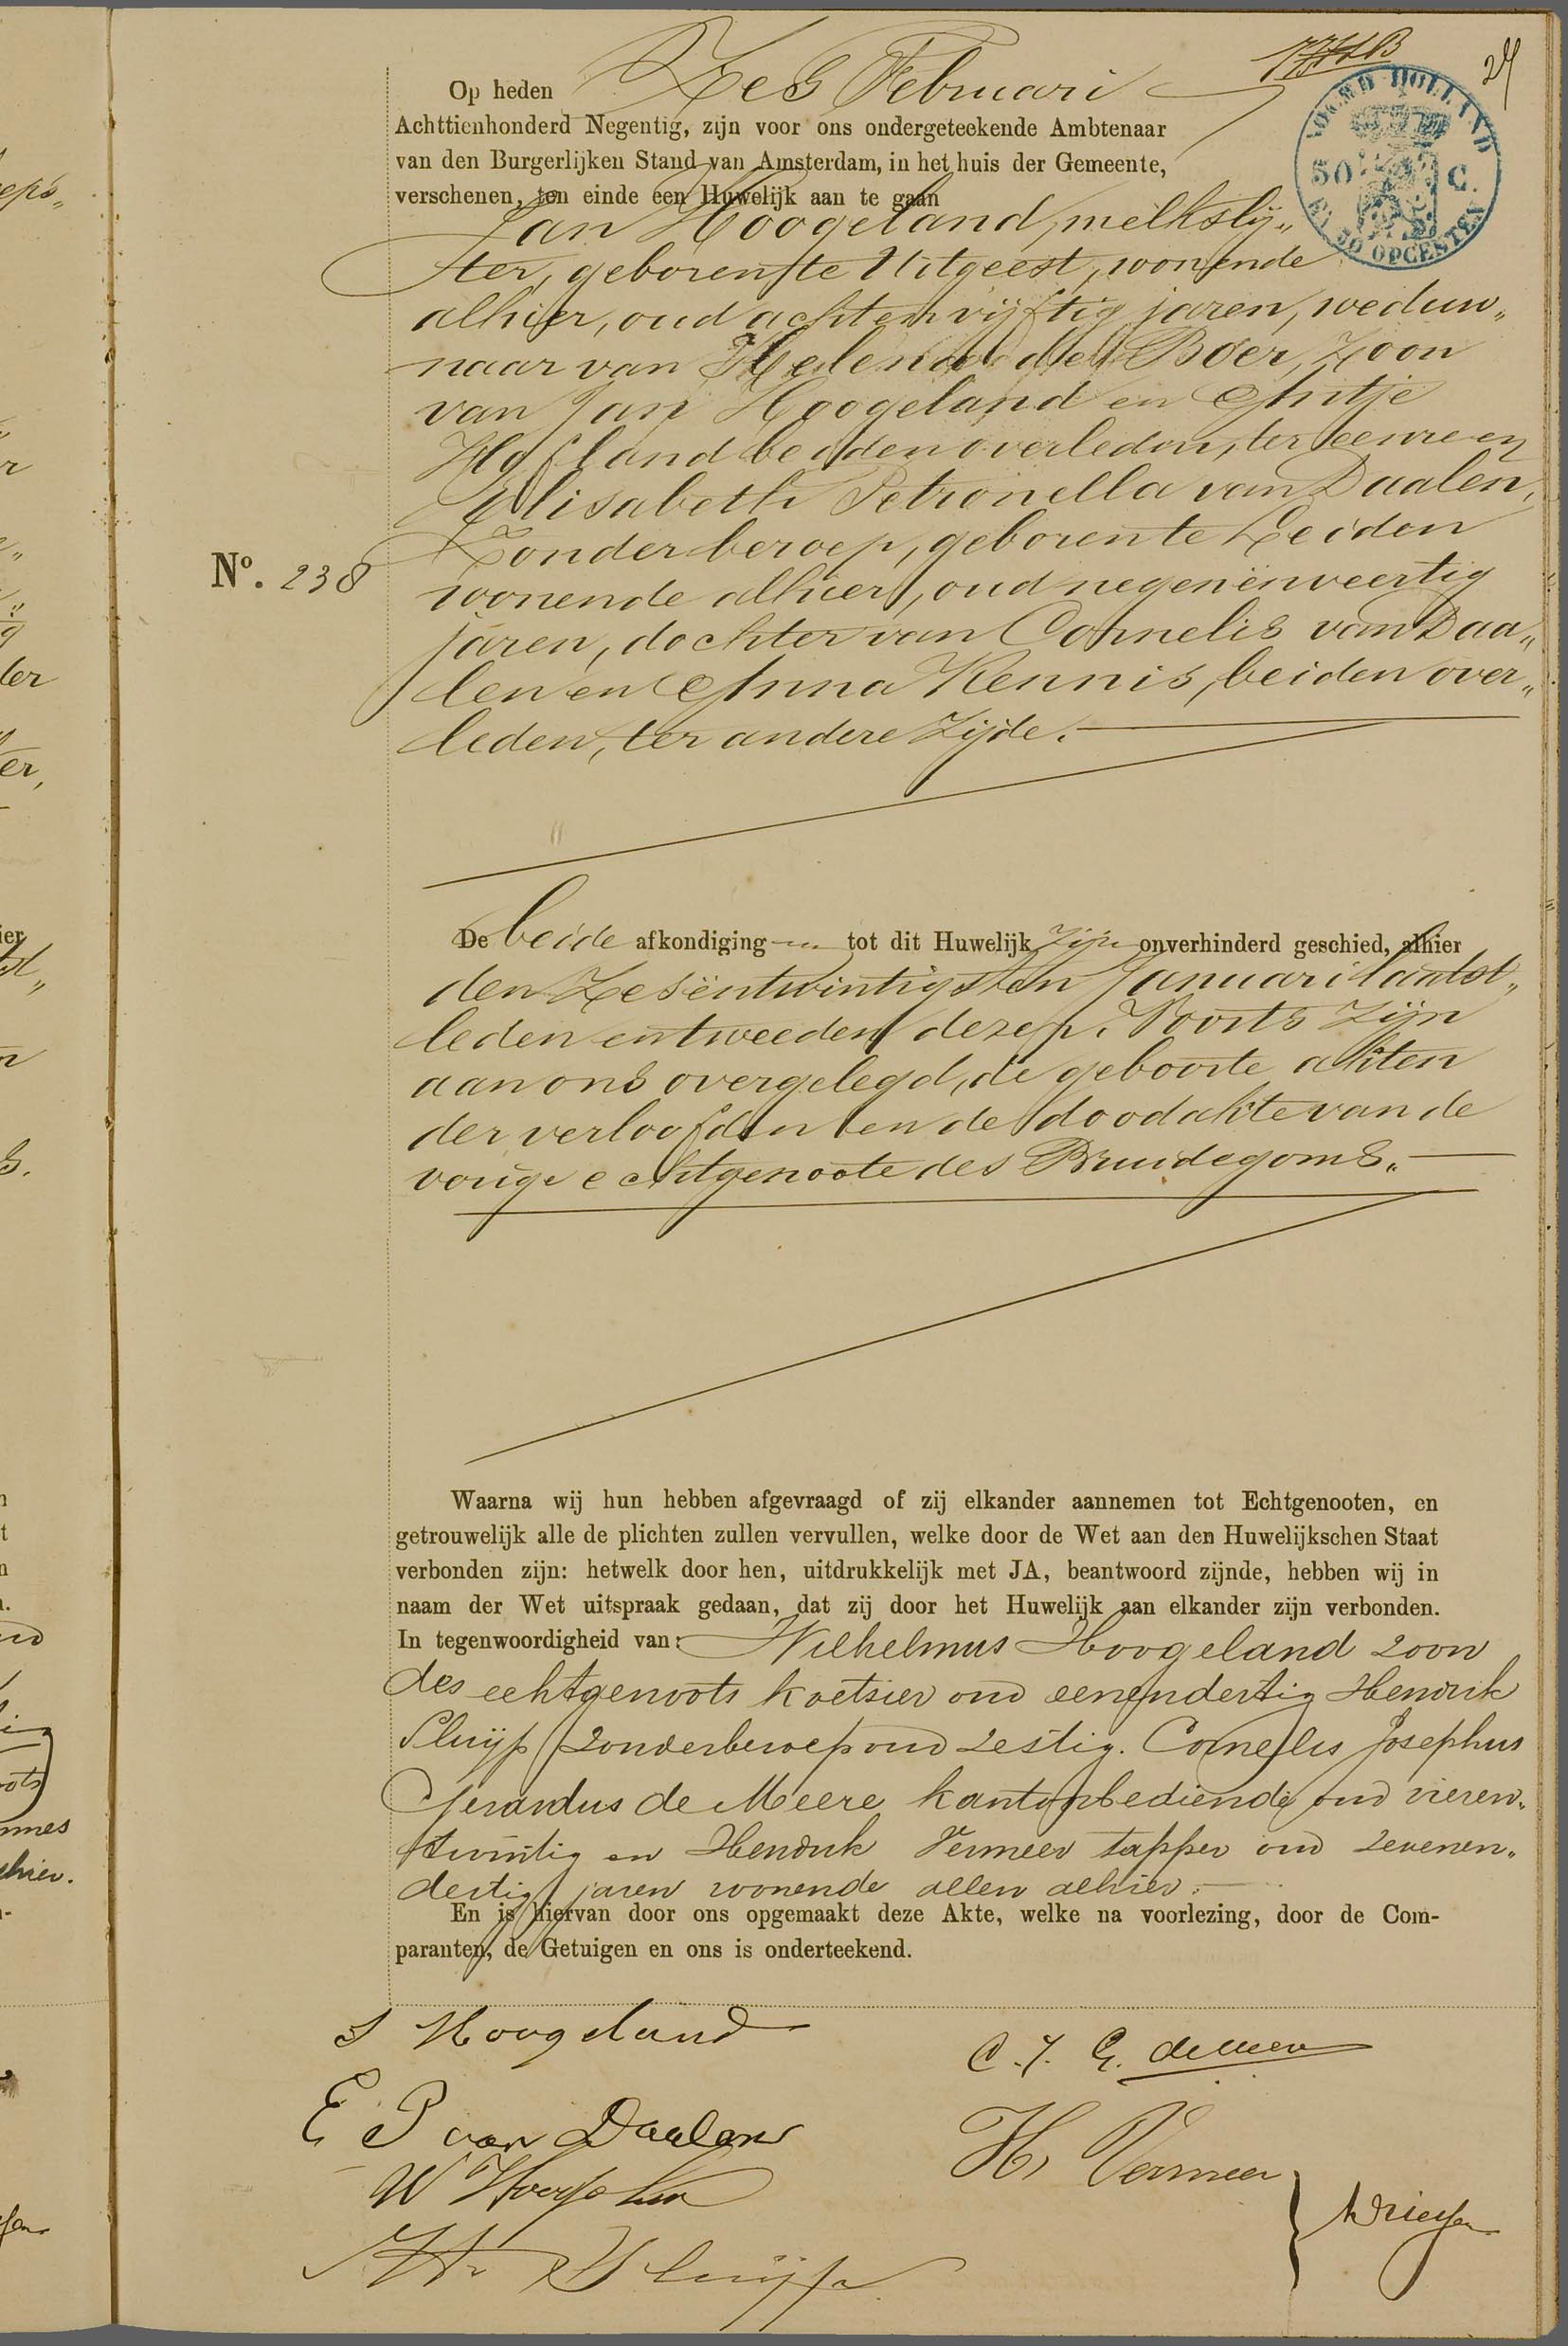 24
Op heden Zes Februari
Achttienhonderd Negentig, zijn voor ons ondergeteekende Ambtenaar
van den Burgerlijken Stand van Amsterdam, in het huis der Gemeente,
verschenen, ten einde een Huwelijk aan te gaan
NOORD HOLLAND
50 C.
EN 30 OPCENTEN
Jan Hoogeland, melkslij„
ter, geboren te Uitgeest, wonende
alhier, oud achtenvijftig jaren, weduw„
naar van Helena den Boer, zoon
van Jan Hoogeland en Antje
Hofland beiden overleden, ter eenre en
Elisabeth Petronella van Daalen,
Zonder beroep, geboren te Leiden
No. 238
wonende alhier, oud negenënveertig
jaren, dochter van Cornelis van Daa„
len en Anna Kennis, beiden over„
leden, ter andere Zijde.
De beide afkondiging en tot dit Huwelijk zijn onverhinderd geschied, alhier
den Zesëntwintigsten Januari laatst„
leden en tweeden dezer. Voorts Zijn
aan ons overgelegd, de geboorte akten
der verloofden en de doodakte van de
vorige echtgenoote des Bruidegoms.
Waarna wij hun hebben afgevraagd of zij elkander aannemen tot Echtgenooten, en
getrouwelijk alle de plichten zullen vervullen, welke door de Wet aan den Huwelijkschen Staat
verbonden zijn: hetwelk door hen, uitdrukkelijk met JA, beantwoord zijnde, hebben wij in
naam der Wet uitspraak gedaan, dat zij door het Huwelijk aan elkander zijn verbonden.
In tegenwoordigheid van: Wilhelmus Hoogeland zoon
des echtgenoots koetsier oud eenendertig Hendrik
Sluijs zonder beroep oud zestig. Cornelis Josephus
Gerardus de Meere kantoorbediende oud vieren„
twintig en Hendrik Vermeer tapper oud zevenen„
dertig jaren wonende allen alhier.
En is hiervan door ons opgemaakt deze Akte, welke na voorlezing, door de Com-
paranten, de Getuigen en ons is onderteekend.
J Hoogeland
C. J. G. de Meere
E P van Daalen
H. Vermeer
W Hoogeland